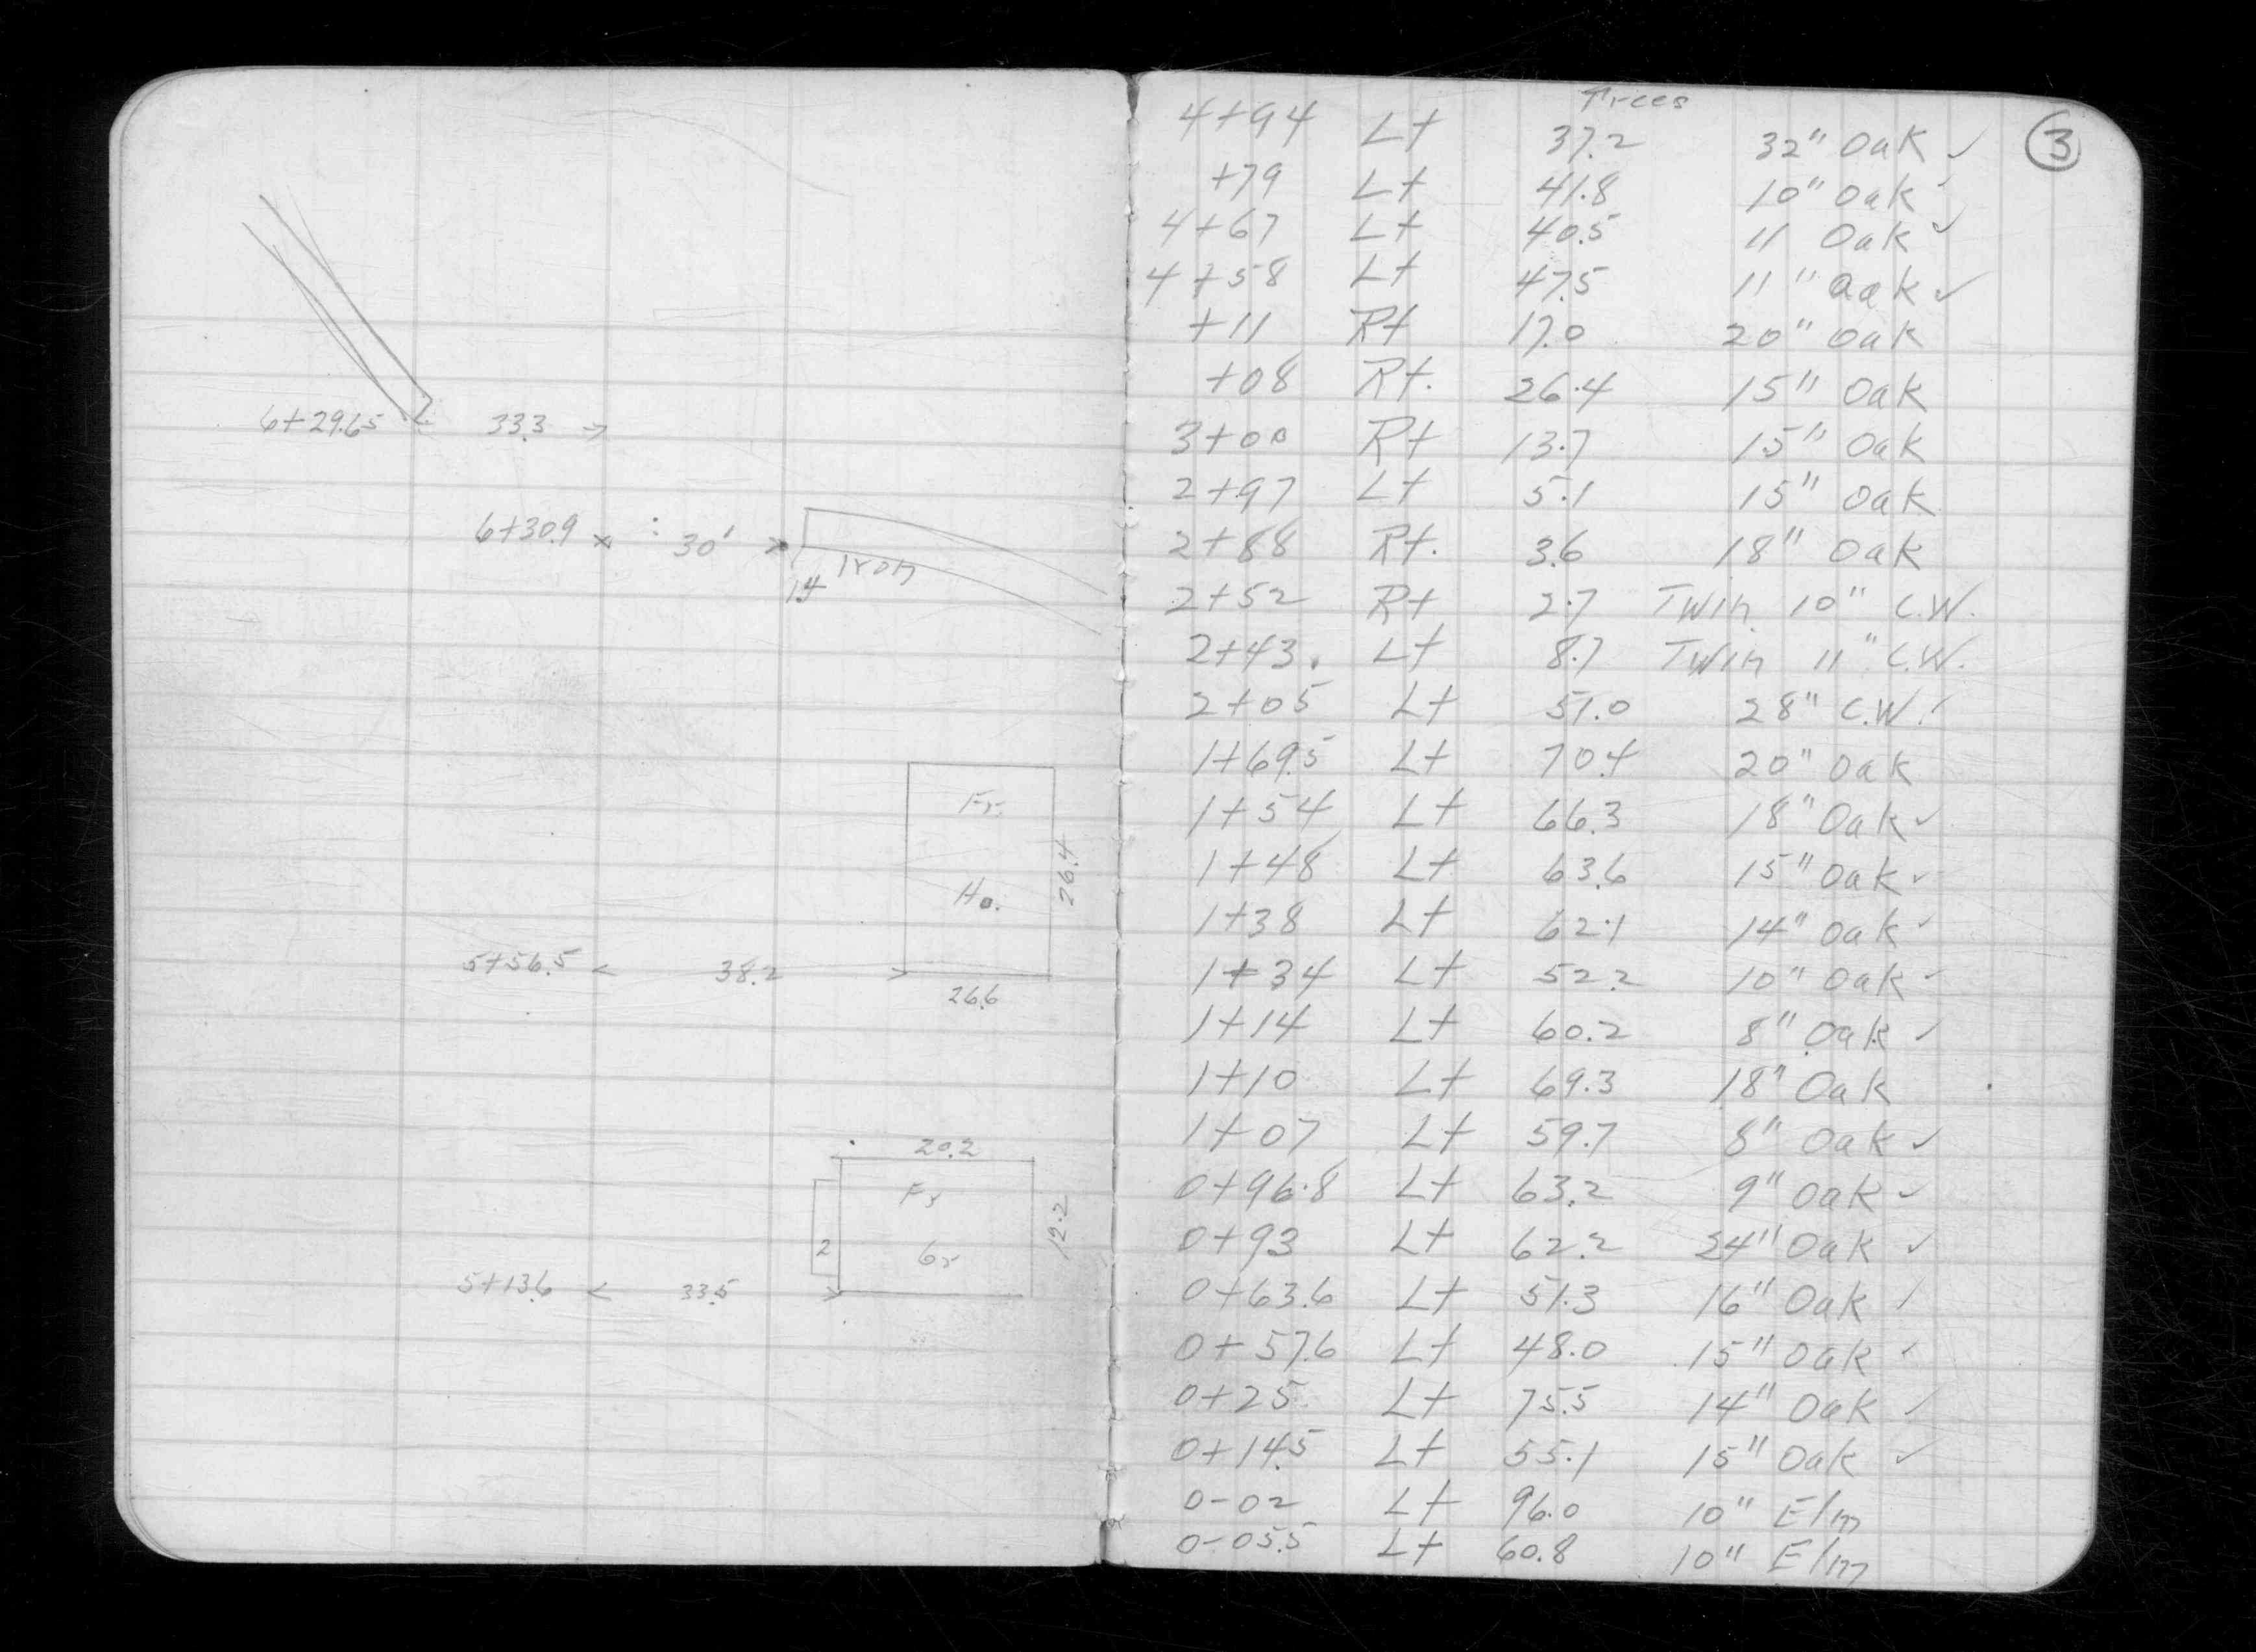 6+29.65 33.3
6+30.9 x 30'
14 Iron
Fr.
Ho.
26.4
5+56.5 38.2
26.6
20.2
Fr
Gr
2
12.2
5+13.6 33.5
Trees
3
4+94 Lt 37.2 32" Oak ✓
+79 Lt 41.8 10" Oak ✓
4+67 Lt 40.5 11 Oak ✓
4+58 Lt 47.5 11" Oak ✓
+11 Rt 17.0 20" Oak
+08 Rt. 26.4 15" Oak
3+00 Rt 13.7 15" Oak
2+97 Lt 5.1 15" Oak
2+88 Rt. 3.6 18" Oak
2+52 Rt 2.7 Twin 10" C.W.
2+43. Lt 8.7 Twin 11" C.W.
2+05 Lt 51.0 28" C.W. ✓
1+69.5 Lt 70.4 20" Oak
1+54 Lt 66.3 18" Oak ✓
1+48 Lt 63.6 15" Oak ✓
1+38 Lt 62.1 14" Oak ✓
1+34 Lt 52.2 10" Oak ✓
1+14 Lt 60.2 8" Oak ✓
1+10 Lt 69.3 18" Oak
1+07 Lt 59.7 8" Oak ✓
0+96.8 Lt 63.2 9" Oak ✓
0+93 Lt 62.2 24" Oak ✓
0+63.6 Lt 51.3 16" Oak ✓
0+57.6 Lt 48.0 15" Oak ✓
0+25 Lt 75.5 14" Oak ✓
0+14.5 Lt 55.1 15" Oak ✓
0-02 Lt 96.0 10" Elm
0-05.5 Lt 60.8 10" Elm